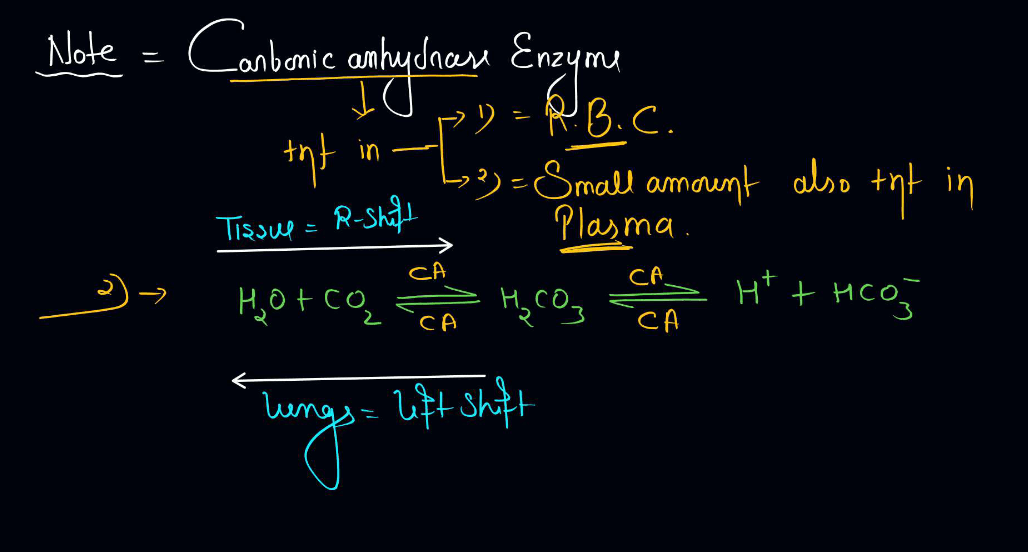 Note = Carbonic anhydrase Enzyme
+nt in → 1) = R.B.C.
→ 2) = Small amount also +nt in
Plasma.
Tissue = R-Shift
2) → H₂O + CO₂ ⇌ H₂CO₃ ⇌ H⁺ + HCO₃⁻
CA CA
CA CA
lungs = left shift